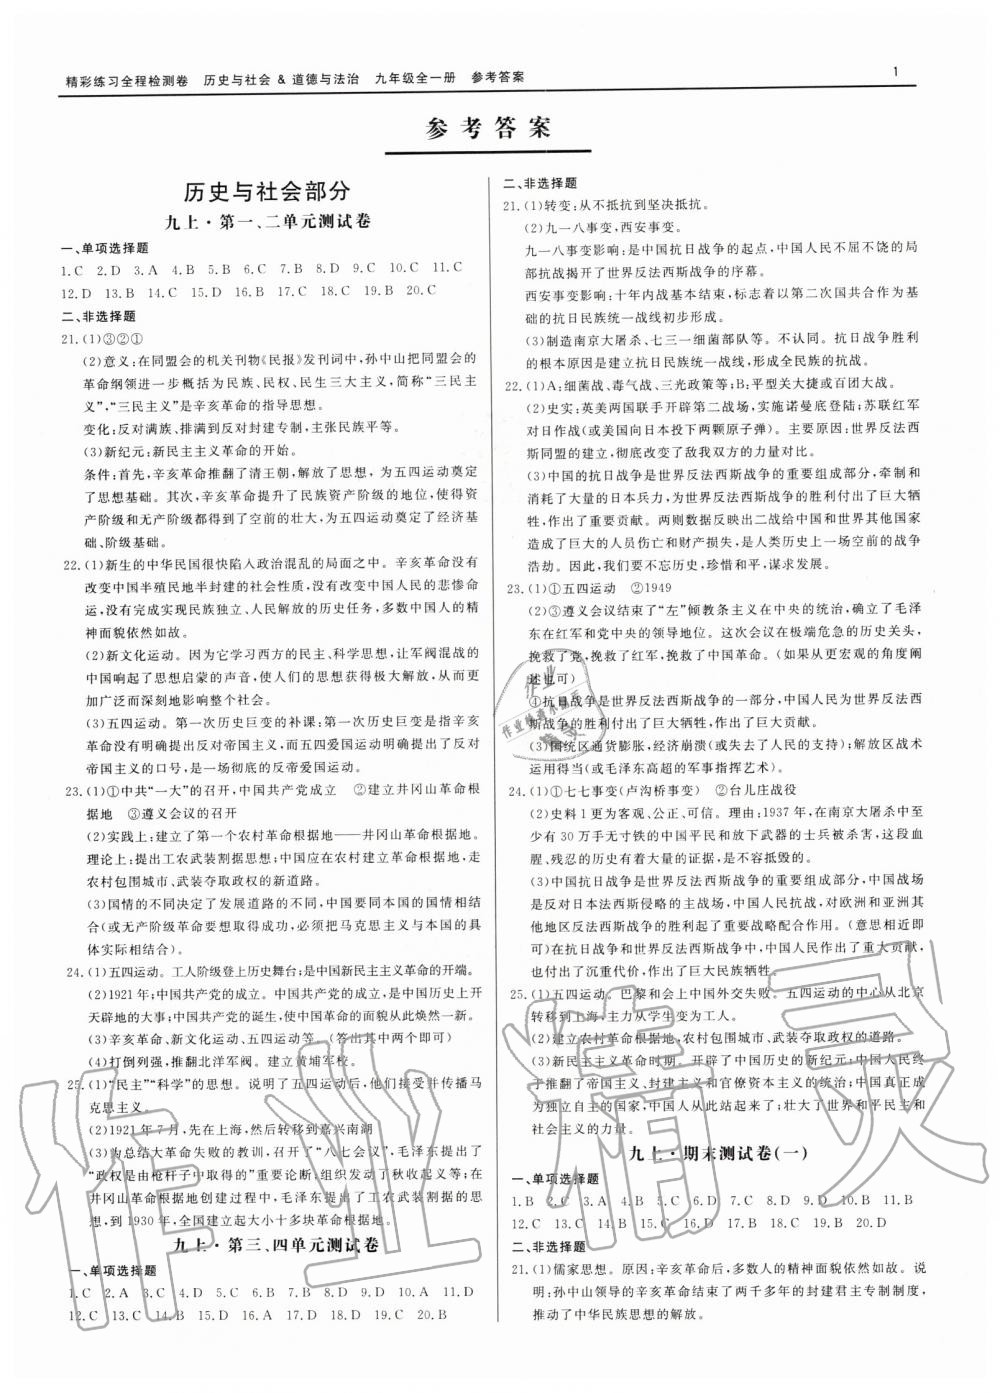 精彩练习全程检测卷 历史与社会 & 道德与法治 九年级全一册 参考答案
1
参考答案
历史与社会部分
九上·第一、二单元测试卷
一、单项选择题
1.C 2.D 3.A 4.B 5.B 6.B 7.B 8.D 9.C 10.C 11.C
12.D 13.B 14.C 15.D 16.C 17.B 18.A 19.B 20.C
二、非选择题
21.(1)③②①
(2)意义:在同盟会的机关刊物《民报》发刊词中,孙中山把同盟会的
革命纲领进一步概括为民族、民权、民生三大主义,简称“三民主
义”,“三民主义”是辛亥革命的指导思想。
变化:反对满族、排满到反对封建专制,主张民族平等。
(3)新纪元:新民主主义革命的开始。
条件:首先,辛亥革命推翻了清王朝,解放了思想,为五四运动奠定
了思想基础。其次,辛亥革命提升了民族资产阶级的地位,使得资
产阶级和无产阶级都得到了空前的壮大,为五四运动奠定了经济基
础、阶级基础。
22.(1)新生的中华民国很快陷入政治混乱的局面之中。辛亥革命没有
改变中国半殖民地半封建的社会性质,没有改变中国人民的悲惨命
运,没有实现民族独立、人民解放的历史任务,多数中国人的精
神面貌依然如故。
(2)新文化运动。因为它学习西方的民主、科学思想,让军阀混战的
中国响起了思想启蒙的声音,使人们的思想获得极大解放,从而更
加广泛而深刻地影响整个社会。
(3)五四运动。第一次历史巨变的补课;第一次历史巨变是指辛亥
革命没有明确提出反对帝国主义的口号,而五四爱国运动提出了反对
帝国主义的口号,是一场彻底的反帝爱国运动。
23.(1)①中共“一大”的召开,中国共产党成立 ②建立井冈山革命根
据地 ③遵义会议的召开
(2)实践上:建立了第一个农村革命根据地——井冈山革命根据地。
理论上:提出工农武装割据思想;中国应在农村建立革命根据地,走
农村包围城市、武装夺取政权的新道路。
(3)国情的不同决定了发展道路的不同,中国要同本国的国情相结
合(或无产阶级革命要想取得成功,必须把马克思主义与本国的具
体实际相结合)。
24.(1)五四运动。工人阶级登上历史舞台;是中国新民主主义革命的开端。
(2)1921年;中国共产党的成立。中国共产党的成立,是中国历史上开
天辟地的大事;中国共产党的诞生,使中国革命的面貌从此焕然一新。
(3)辛亥革命、新文化运动、五四运动等。(答出其中两个即可)
(4)打倒列强,推翻北洋军阀。建立黄埔军校。
25.(1)“民主”“科学”的思想。说明了五四运动后,他们接受并传播马
克思主义。
(2)1921年7月,先在上海,然后转移到嘉兴南湖
(3)为总结大革命失败的教训,召开了“八七会议”,毛泽东提出了
“政权是由枪杆子中取得的”重要论断,组织发动了秋收起义等;在
井冈山革命根据地创建过程中,毛泽东提出了工农武装割据的思
想,到1930年,全国建立起大小十多块革命根据地。
九上·第三、四单元测试卷
一、单项选择题
1.C 2.A 3.C 4.D 5.D 6.A 7.D 8.D 9.B 10.B 11.C
12.C 13.C 14.C 15.B 16.C 17.B 18.C 19.C 20.B
二、非选择题
21.(1)转变:从不抵抗到坚决抵抗。
(2)九一八事变,西安事变。
九一八事变影响:是中国抗日战争的起点,中国人民不屈不饶的局
部抗战揭开了世界反法西斯战争的序幕。
西安事变影响:十年内战基本结束,标志着以第二次国共合作为基
础的抗日民族统一战线初步形成。
(3)制造南京大屠杀、七三一细菌部队等。不认同。抗日战争胜利
的根本原因是建立抗日民族统一战线,形成全民族的抗战。
22.(1)A:细菌战、毒气战、三光政策等;B:平型关大捷或百团大战。
(2)史实:英美两国联手开辟第二战场,实施诺曼底登陆;苏联红军
对日作战(或美国向日本投下两颗原子弹)。主要原因:反法西
斯同盟的建立,彻底改变了敌我双方的力量对比。
(3)中国的抗日战争是世界反法西斯战争的重要组成部分,牵制和
消耗了大量的日本兵力,为世界反法西斯战争的胜利付出巨大牺
牲,作出了重要贡献。两则数据反映出二战给中国和世界其他国家
造成了巨大的人员伤亡和财产损失,是人类历史上一场空前的战争
浩劫。因此,我们要不忘历史,珍惜和平,谋求发展。
23.(1)①五四运动 ②1949
(2)③遵义会议结束了“左”倾教条主义在中央的统治,确立了毛泽
东在红军和党中央的领导地位。这次会议在极端危急的历史关头,
挽救了党,挽救了红军,挽救了中国革命。(如果从更宏观的角度阐
述也可)
④抗日战争是世界反法西斯战争的一部分,中国人民为世界反法西
斯战争的胜利付出了巨大牺牲,作出了巨大贡献。
(3)国统区通货膨胀,经济崩溃(或失去了人民的支持);解放区战术
运用得当(或毛泽东高超的军事指挥艺术)。
24.(1)①七七事变(卢沟桥事变) ②台儿庄战役
(2)史料1更为客观、公正、可信。理由:1937年,在南京大屠杀中至
少有30万手无寸铁的中国平民和放下武器的士兵被杀害,这段血
腥、残忍的历史有着大量的证据,是不容抵毁的。
(3)中国抗日战争是世界反法西斯战争的重要组成部分,中国战场
是反对日本法西斯侵略的主战场,中国人民抗战,对欧洲和亚洲其
他地区反法西斯战争的胜利起了重要战略配合作用。(意思相近即
可)在抗日战争和世界反法西斯战争中,中国人民作出了重大贡献,
也付出了沉重代价,作出了巨大民族牺牲。
25.(1)五四运动。巴黎和会上中国外交失败。五四运动的中心从北京
转移到上海,主力从学生变为工人。
(2)建立农村革命根据地,农村包围城市、武装夺取政权的道路。
(3)新民主主义革命时期。开辟了中国历史的新纪元;中国人民终
于推翻了帝国主义、封建主义和官僚资本主义的统治;中国真正成
为独立自主的国家,中国人民从此站起来了;壮大了世界和平民主和
社会主义的力量。
九上·期末测试卷(一)
一、单项选择题
1.B 2.C 3.C 4.B 5.C 6.D 7.B 8.D 9.D 10.B 11.B
12.C 13.C 14.C 15.D 16.C 17.C 18.B 19.B 20.D
二、非选择题
21.(1)儒家思想。原因:辛亥革命后,多数人的精神面貌依然如故。说
明:孙中山领导的革命结束了两千多年的封建君主专制制度,
推动了中华民族思想的解放。
作业精灵